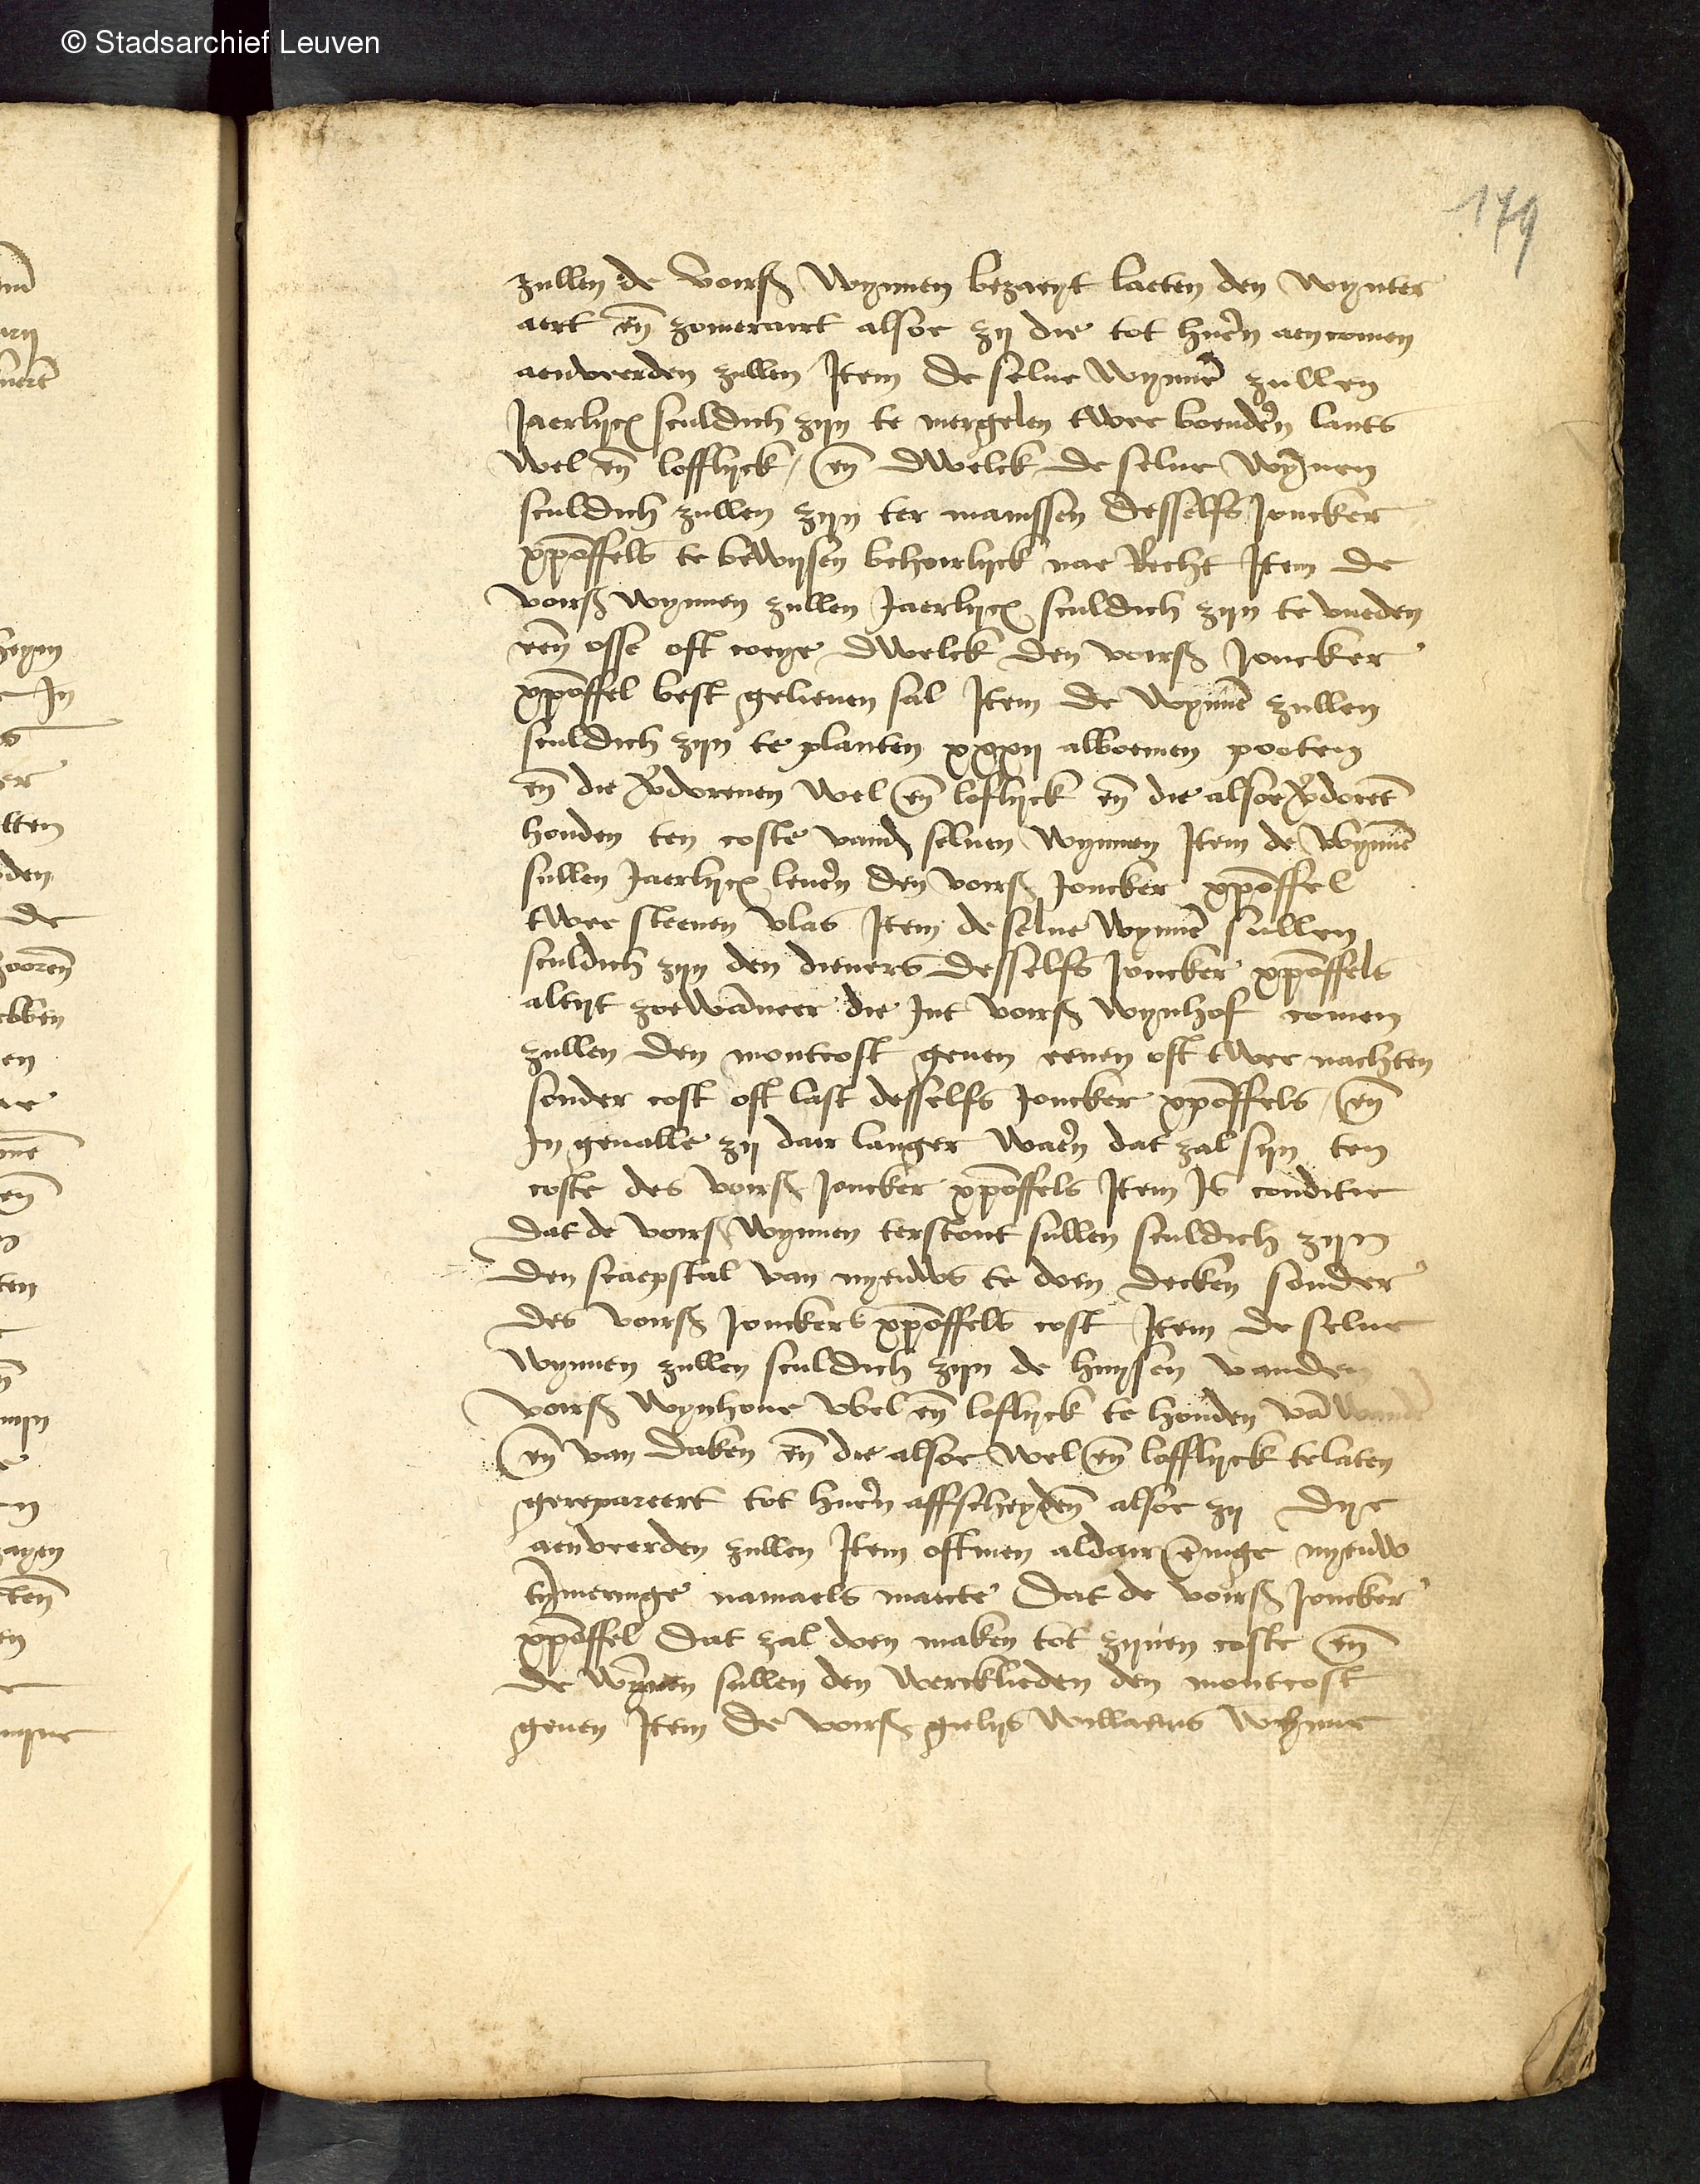 © Stadsarchief Leuven
179
zullen de voirs wynnen bezaeyt laeten den wynter
aert en̄ zomerairt alsoe zij die tot huerē aencomen
aenveerden zullen Item de selve wynnē zullen
Jaerlijcx sculdich zijn te mergelen twee boenderē lants
wel en̄ lofflijck / en̄ dwelck de selue wynnen
sculdich zullen zijn ter manissen desselfs Joncker
xp̄offels te bewijsen behoirlijck nae Recht Item de
voirs wynnen zullen Jaerlijcx sculdich zijn te vueden
een̄ osse oft coeye dwelck den voirs Joncker
xp̄offel best gelieuen sal Item de wynnē zullen
sculdich zijn te planten xxxij alboemen pooten
en̄ die v̄dorenen wel en̄ loflijck en̄ die alsoe v̄dorēt
houden ten coste vand seluen wynnen Item de wynnē
sullen Jaerlijcx leuerē den voirs Joncker xp̄offel
twee steenen vlas Item de selue wynnē sullen
sculdich zijn den dieners desselfs Joncker xp̄offels
altijt zoewanneer die Int voirs wynhof comen
zullen den montcost geuen eenen oft twee nachten
sonder cost oft last desselfs Joncker xp̄offels / en̄
In geualle zij dair langer waerē dat zal sijn ten
coste des voirs Joncker xp̄offels Item Is conditie
dat de voirs wynnen terstont sullen sculdich zijn
den scaepstal van nyeuws te doen decken sonder
des voirs Jonckers xp̄offels cost Item de selue
wynnen zullen sculdich zijn de huysen vanden
voirs wynhoue wel en̄ loflijck te houden vā wandē
en̄ van daken en̄ die alsoe wel en̄ lofflijck telaten
gerepareert tot huerē affscheydēn alsoe zij dye
aenveerden zullen Item oftmen aldair eēnige nyeuw
tȳmeringe namaels maecte dat de voirs Joncker
xp̄offel dat zal doen maken tot zijnen coste en̄
de wynnen sullen den werclieden den montcost
geuen Item de voirs gielijs willaems wynne